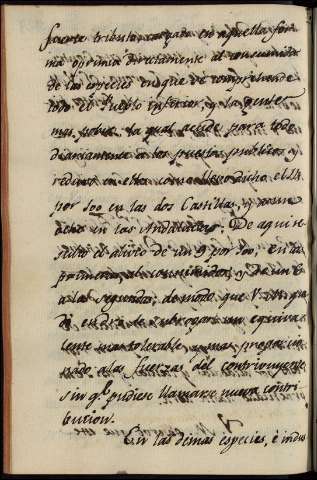 fuerte tributo cargada en aquella for
ma oprimia directamente al consumidor
de las especies en que se comprehende
todo el Pueblo inferior y la gente
mas pobre, la qual acude para todo
diariamente a los puestos publicos y
reducia en ellos como llevo dicho el 14
por 100 en las dos Castillas, y
ocho en las Andalucias. De aqui re
sulta el alivio de un 9 por 100, en la
primera, al consumidor, y de un 6
a las segundas; de modo que V. Mag.
de subrogar un equiva
lente mas tolerable, y mas proporcio
nado a las fuerzas del contribuyente
sin q.e pudiese llamarse nueva contri
bucion.
En las demas especies, è indus